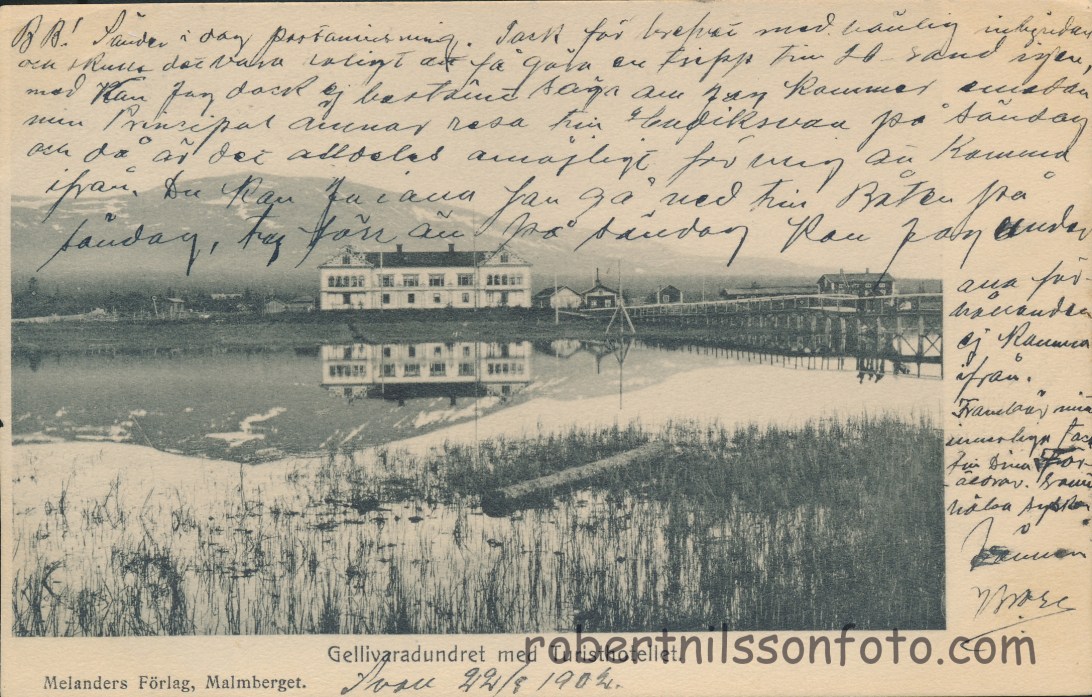 BB! Sänder i dag postanvisning. Tack för brefvet med vänlig inbjudan
och skulle det vara roligt att få göra en tripp till Ad-sand igen,
med Kan jag dock ej bestämt säga om jag kommer emedan
min Principal ämnar resa till Hudiksvall på söndag
och då är det alldeles omöjligt för mig att komma
ifrån. Du Kan ju i ana fan gå ned till Båten på
söndag, för än på söndag Kan jag under
ana för
hållanden
ej Komma
ifrån.
Frambär min
innerliga tack
till Dina För-
äldrar. samt
hälsa
Vännen
Gellivaradundret med Turisthotellet.
Melanders Förlag, Malmberget.
22/8 1902.
robertnilssonfoto.com